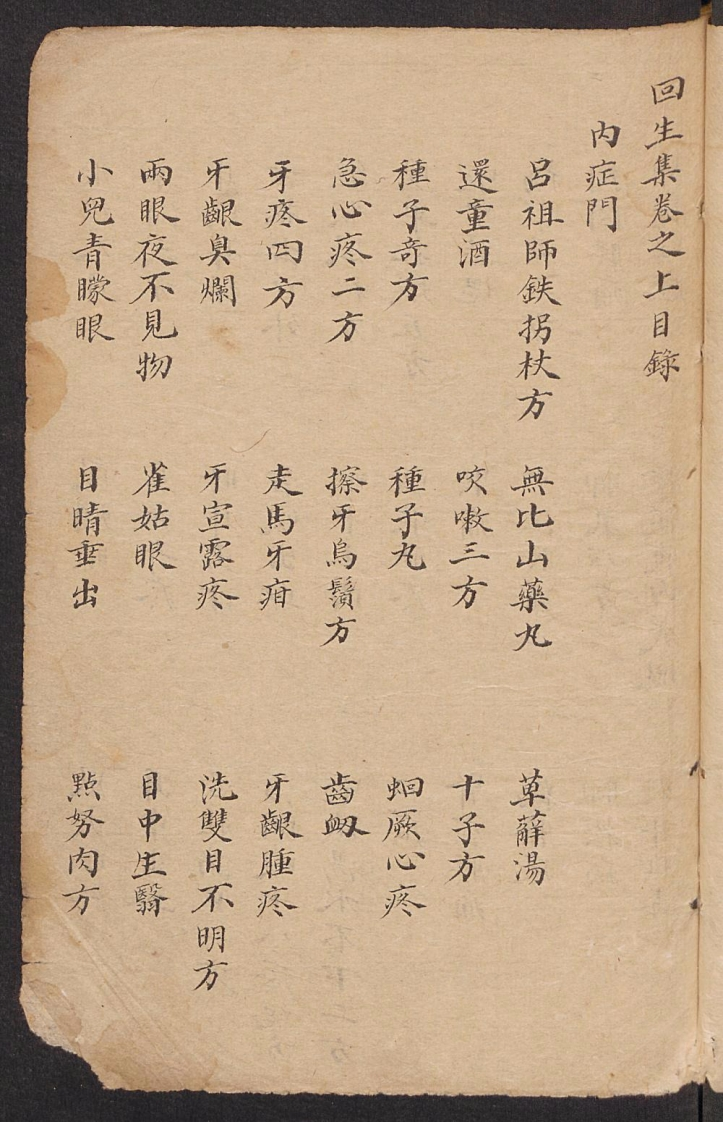 回生集卷之上目錄
內症門
呂祖師鉄拐杖方 無比山藥丸 萆薢湯
還童酒 咳嗽三方 十子方
種子奇方 種子丸 蛔厥心疼
急心疼二方 擦牙烏鬚方 齒衂
牙疼四方 走馬牙疳 牙齦腫疼
牙齦臭爛 牙宣露疼 洗雙目不明方
兩眼夜不見物 雀姑眼 目中生翳
小兒青矇眼 目睛垂出 點努肉方